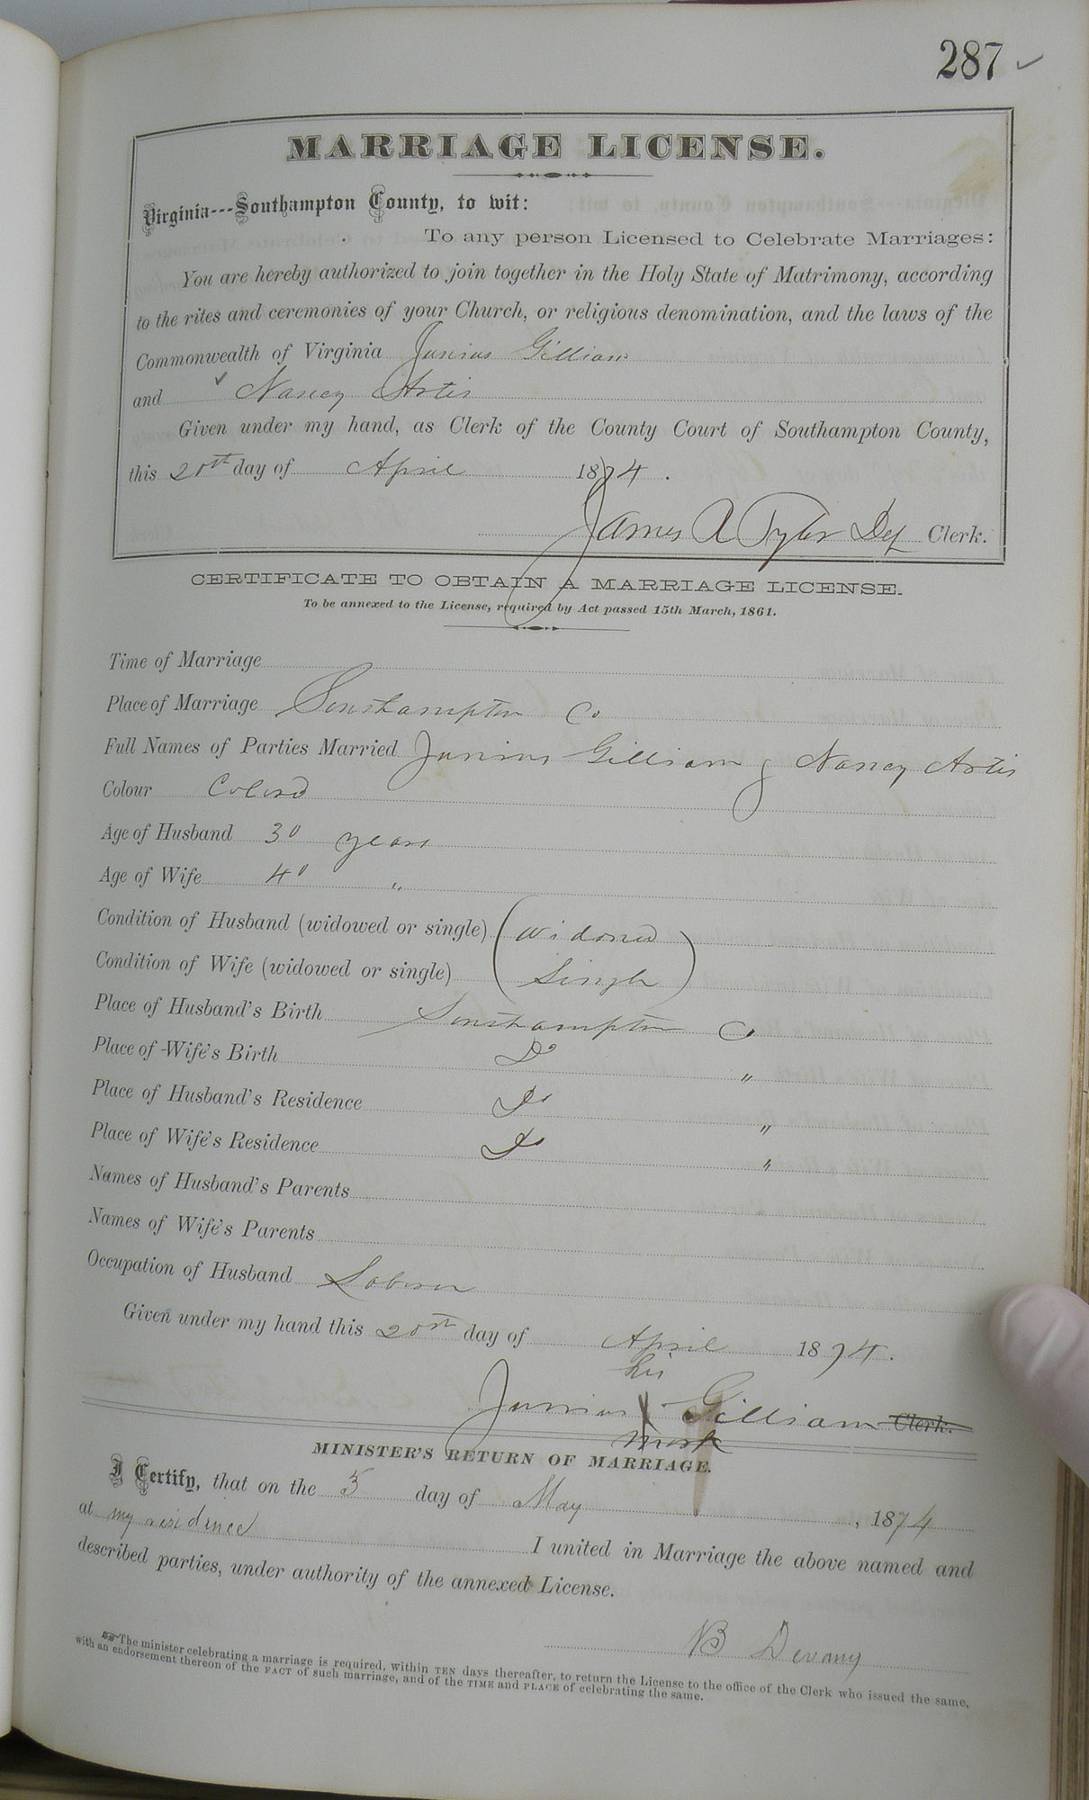 287 ✓
MARRIAGE LICENSE.
Virginia---Southampton County, to wit:
To any person Licensed to Celebrate Marriages:
You are hereby authorized to join together in the Holy State of Matrimony, according
to the rites and ceremonies of your Church, or religious denomination, and the laws of the
Commonwealth of Virginia Junius Gilliam
and ✓ Nancy Artis
Given under my hand, as Clerk of the County Court of Southampton County,
this 20th day of April 1874.
James R Tyler Dep Clerk.
CERTIFICATE TO OBTAIN A MARRIAGE LICENSE.
To be annexed to the License, required by Act passed 15th March, 1861.
Time of Marriage
Place of Marriage Southampton Co
Full Names of Parties Married Junius Gilliam & Nancy Artis
Colour Colord
Age of Husband 30 years
Age of Wife 40 "
Condition of Husband (widowed or single) (widowed
Condition of Wife (widowed or single) Single)
Place of Husband's Birth Southampton Co
Place of Wife's Birth Do "
Place of Husband's Residence Do "
Place of Wife's Residence Do "
Names of Husband's Parents
Names of Wife's Parents
Occupation of Husband Laborer
Given under my hand this 20th day of April 1874.
his
Junius X Gilliam Clerk.
mark
MINISTER'S RETURN OF MARRIAGE.
I Certify, that on the 3 day of May, 1874
at my residence I united in Marriage the above named and
described parties, under authority of the annexed License.
B Devany
☞The minister celebrating a marriage is required, within TEN days thereafter, to return the License to the office of the Clerk who issued the same,
with an endorsement thereon of the FACT of such marriage, and of the TIME and PLACE of celebrating the same.